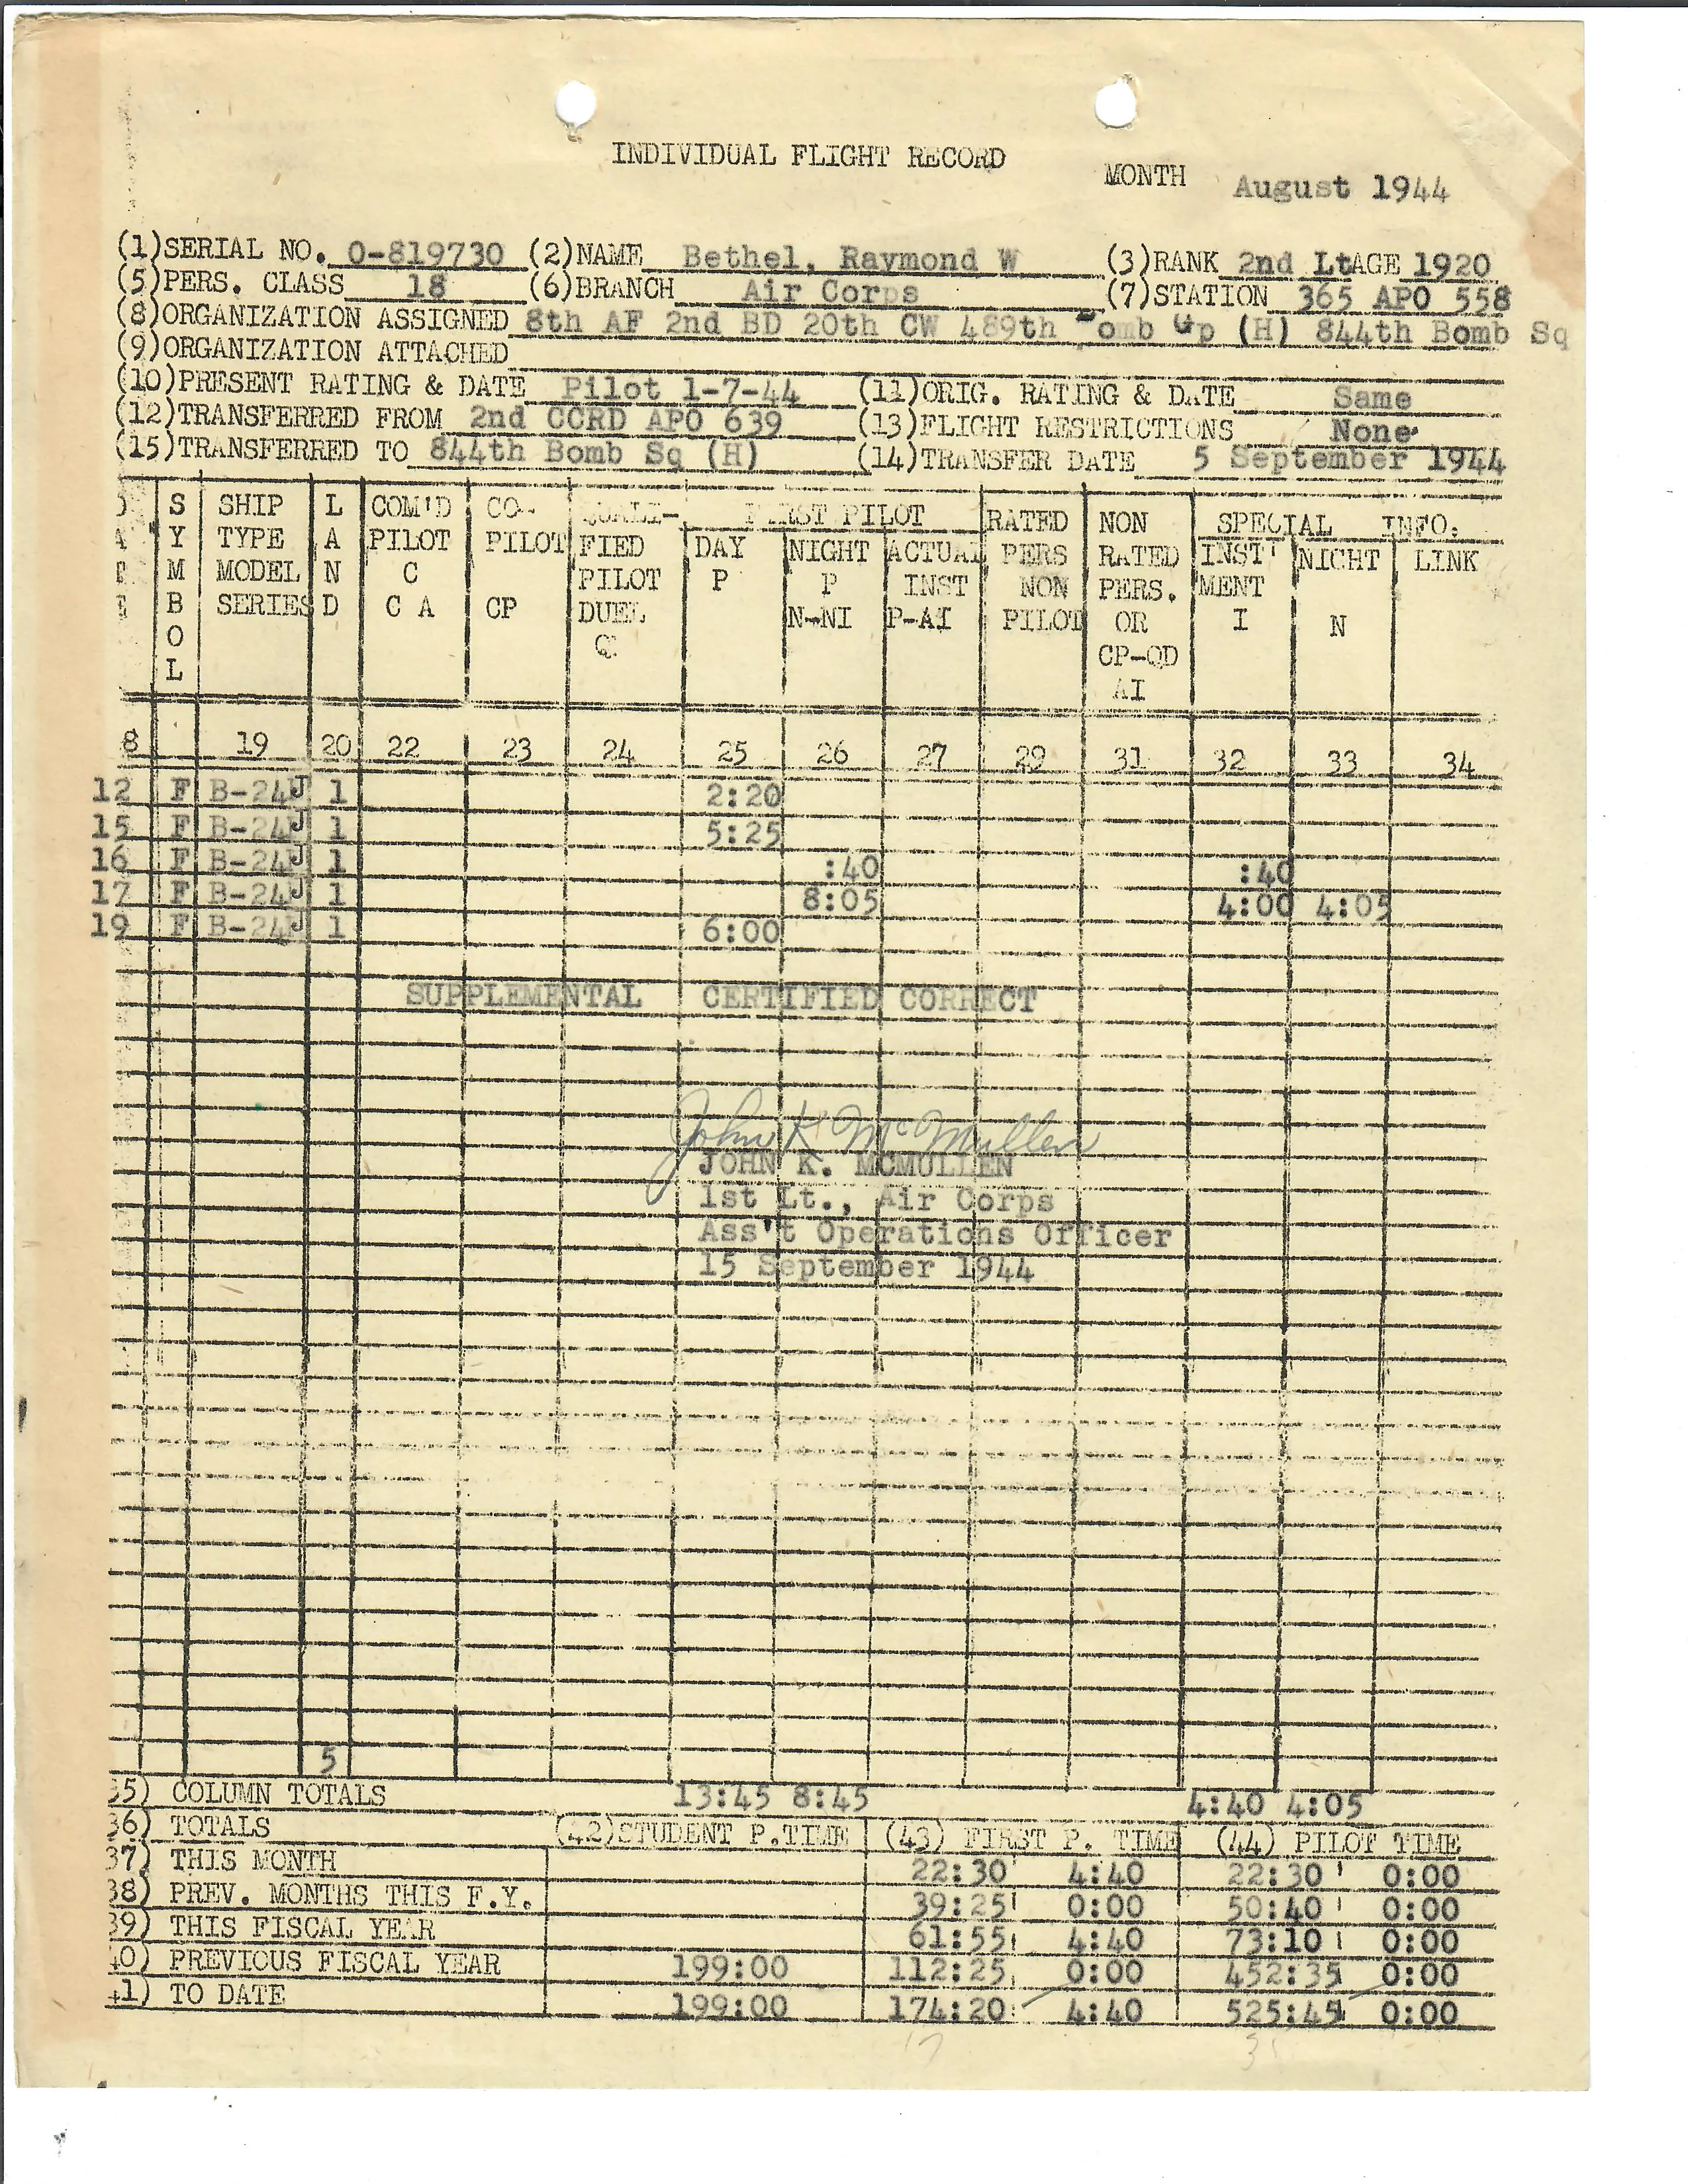 INDIVIDUAL FLIGHT RECORD
MONTH August 1944
(1)SERIAL NO. 0-819730 (2)NAME Bethel, Raymond W (3)RANK 2nd Lt AGE 1920
(5)PERS. CLASS 18 (6)BRANCH Air Corps (7)STATION 365 APO 558
(8)ORGANIZATION ASSIGNED 8th AF 2nd BD 20th CW 489th omb Gp (H) 844th Bomb Sq
(9)ORGANIZATION ATTACHED
(10)PRESENT RATING & DATE Pilot 1-7-44 (11)ORIG. RATING & DATE Same
(12)TRANSFERRED FROM 2nd CCRD APO 639 (13)FLIGHT RESTRICTIONS None
(15)TRANSFERRED TO 844th Bomb Sq (H) (14)TRANSFER DATE 5 September 1944
S SHIP L COM'D CO- QUALI- FIRST PILOT RATED NON SPECIAL INFO:
Y TYPE A PILOT PILOT FIED DAY NIGHT ACTUAL PERS RATED INST' NIGHT LINK
M MODEL N C PILOT P P INST NON PERS. MENT
B SERIES D C A CP DUEL N-NI P-AI PILOT OR I N
O Q CP-QD
L AI
8 19 20 22 23 24 25 26 27 29 31 32 33 34
12 F B-24J 1 2:20
15 F B-24J 1 5:25
16 F B-24J 1 :40 :40
17 F B-24J 1 8:05 4:00 4:05
19 F B-24J 1 6:00
SUPPLEMENTAL CERTIFIED CORRECT
John K McMullen
JOHN K. MCMULLEN
1st Lt., Air Corps
Ass't Operations Officer
15 September 1944
5
35) COLUMN TOTALS 13:45 8:45 4:40 4:05
36) TOTALS (42)STUDENT P.TIME (43) FIRST P. TIME (44) PILOT TIME
37) THIS MONTH 22:30 4:40 22:30 0:00
38) PREV. MONTHS THIS F.Y. 39:25 0:00 50:40 0:00
39) THIS FISCAL YEAR 61:55 4:40 73:10 0:00
40) PREVIOUS FISCAL YEAR 199:00 112:25 0:00 452:35 0:00
41) TO DATE 199:00 174:20 4:40 525:45 0:00